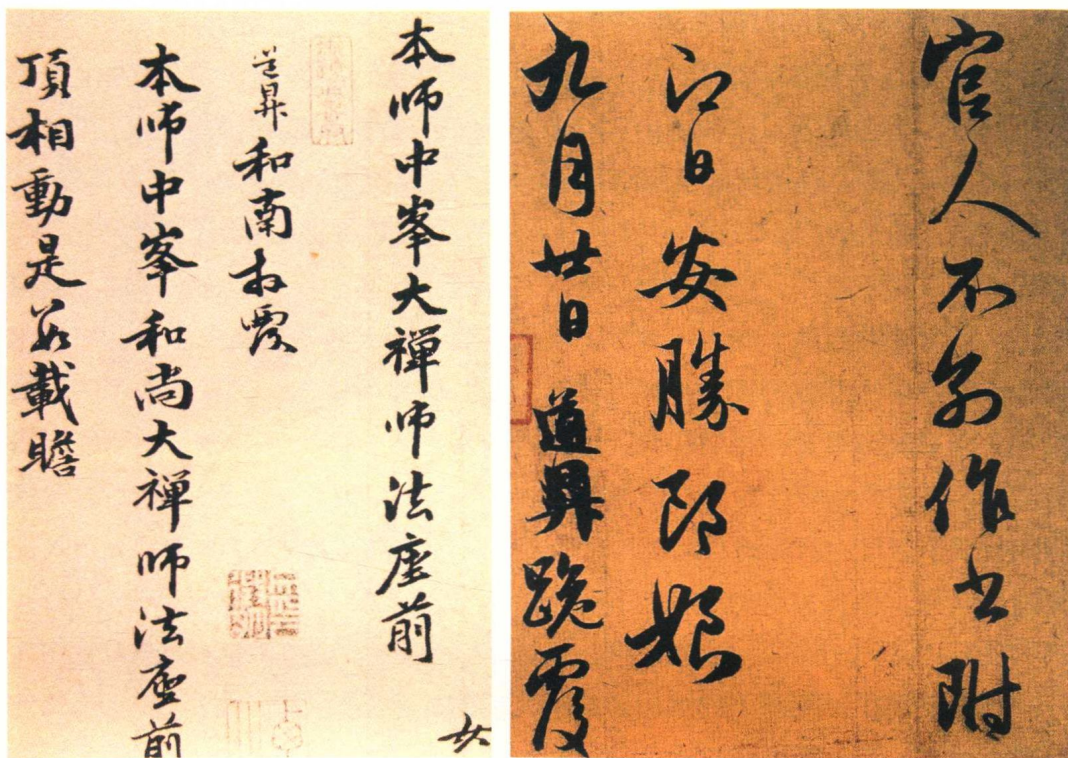 本师中峯大禅师法座前
和南拜覆
本师中峯和尚大禅师法座前
頂相動是數載瞻
官人不別作书附
日安勝郎娘
九月廿日 道昇跪覆